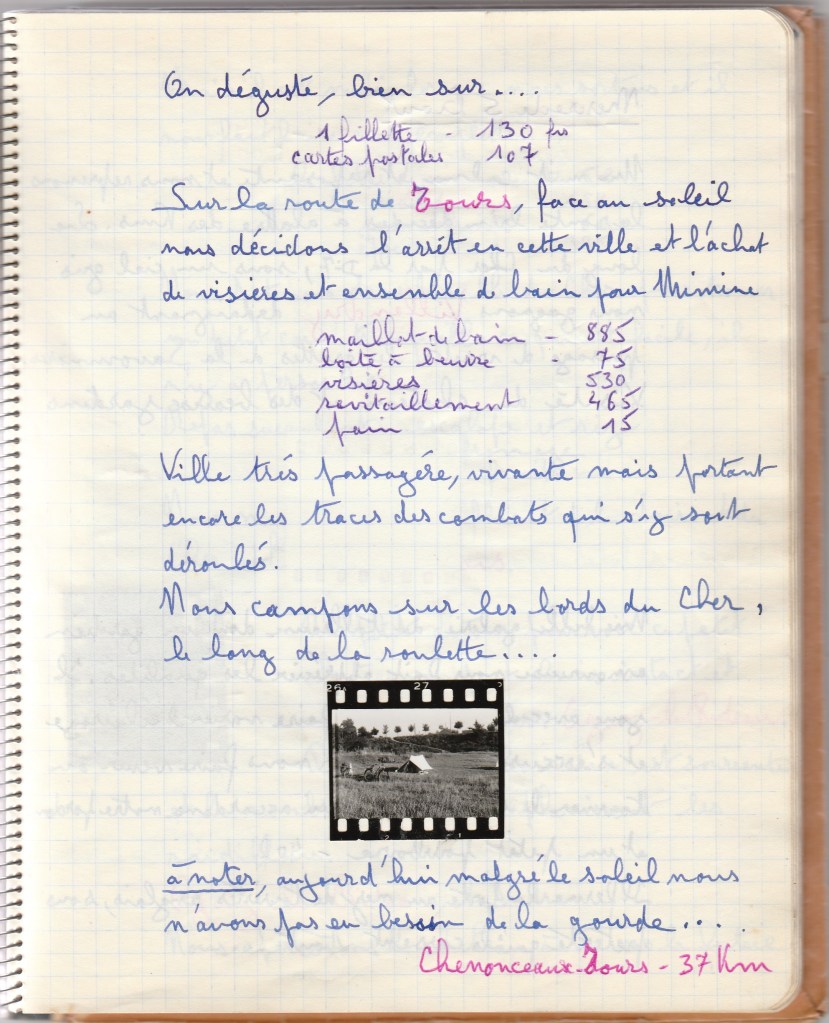 On déguste, bien sur....
1 fillette - 130 frs
cartes postales 107
Sur la route de Tours, face au soleil
nous décidons l'arrêt en cette ville et l'achat
de visières et ensemble de bain pour Mimine
maillot de bain - 885
boite à beurre - 75
visières 530
ravitaillement 465
pain 15
Ville trés passagére, vivante mais portant
encore les traces des combats qui s'y sont
déroulés.
Nous campons sur les bords du Cher,
le long de la roulette....
26 27
à noter, aujourd'hui malgré le soleil nous
n'avons pas eu besoin de la gourde....
Chenonceaux-Tours - 37 Km